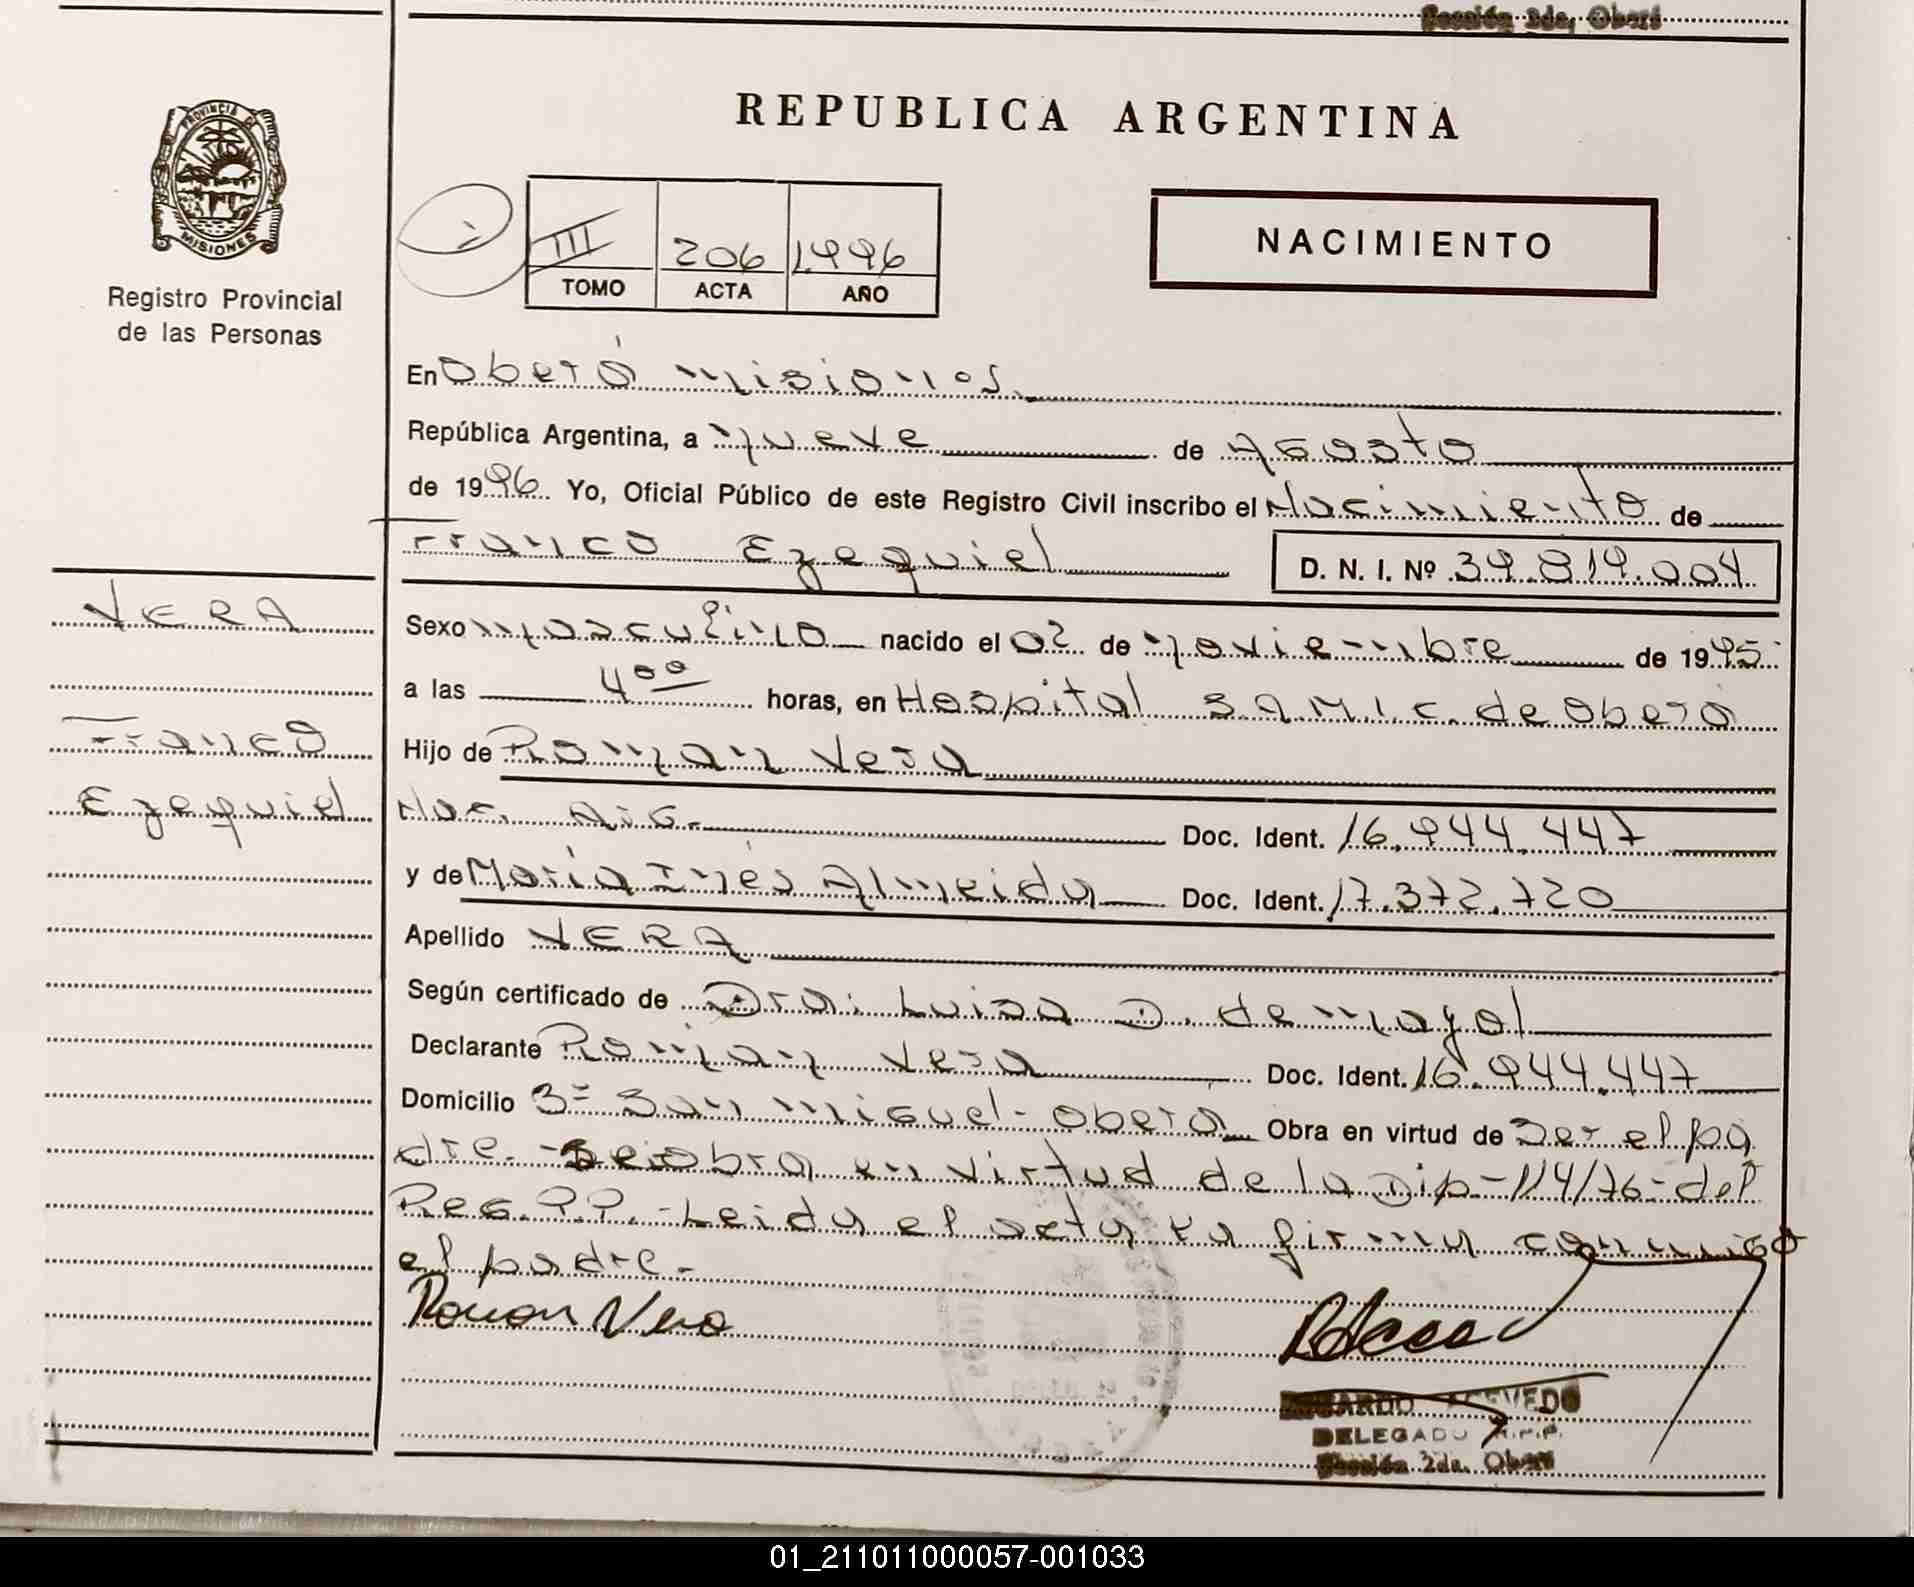 Sección 2da. Oberá
REPUBLICA ARGENTINA
PROVINCIA DE
MISIONES
Registro Provincial
de las Personas
III 206 1996
TOMO ACTA AÑO
NACIMIENTO
En Oberá misiones
República Argentina, a nueve de Agosto
de 1996 Yo, Oficial Público de este Registro Civil inscribo el Nacimiento de
Franco Ezequiel D. N. I. Nº 39.819.004
VERA
Sexo masculino nacido el 02 de noviembre de 1995
a las 4 00 horas, en Hospital S.A.M.I.C. de Oberá
Franco
Hijo de Roman Vera
Ezequiel
Nac. Arg. Doc. Ident. 16.944.447
y de María Inés Almeida Doc. Ident. 17.372.720
Apellido VERA
Según certificado de Dra: Luisa D. de mayol
Declarante Roman Vera Doc. Ident. 16.944.447
Domicilio 3= San miguel - Oberá Obra en virtud de Ser el pa
dre. - Se obra en virtud de la Dip-114/76- del
Reg.P.P. - Leida el acta la firma conmigo
el padre.-
Roman Vera
ACEVEDO
DELEGADO R.P.P.
Sección 2da. Oberá
01_211011000057-001033